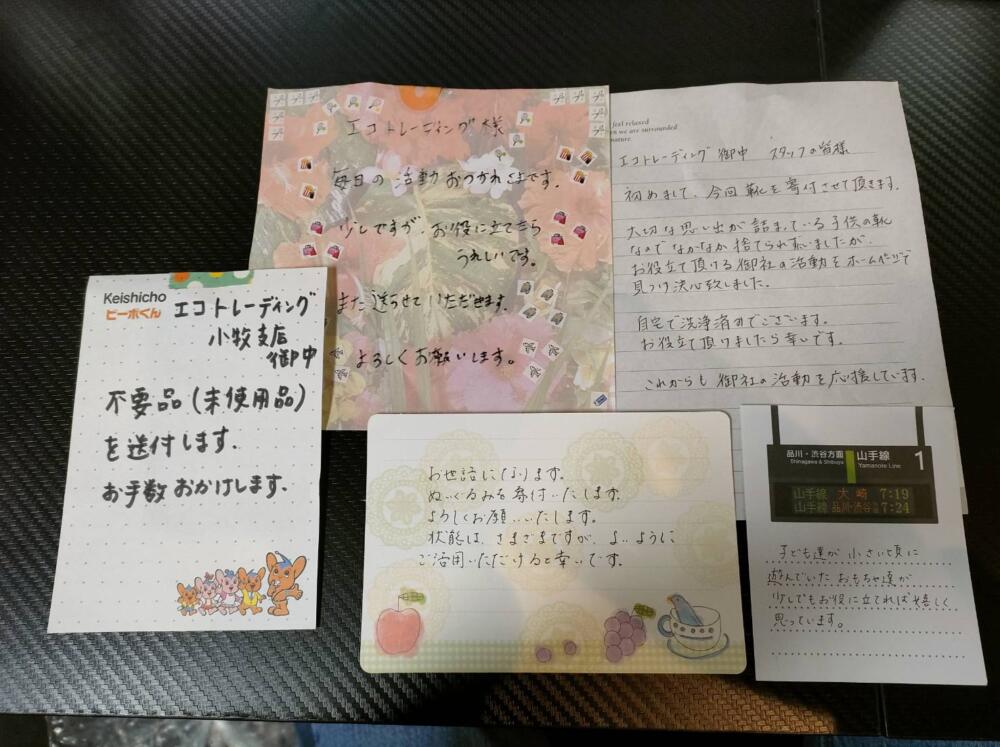 エコトレーディング様
毎日の活動おつかれさまです。
少しですが、お役に立てたら
うれしいです。
また送らせていただきます。
よろしくお願いします。
feel relaxed
n we are surrounded
nature.
エコトレーディング御中 スタッフの皆様
初めまして、今回靴を寄付させて頂きます。
大切な思い出が詰まっている子供の靴
なのでなかなか捨てられずいましたが、
お役立て頂ける御社の活動をホームページで
見つけ決心致しました。
自宅で洗浄済みでございます。
お役立て頂けましたら幸いです。
これからも御社の活動を応援しています。
Keishicho
ピーポくん
エコトレーディング
小牧支店
御中
不要品(未使用品)
を送付します.
お手数おかけします.
お世話になります。
ぬいぐるみを寄付いたします。
よろしくお願いいたします。
状態は、さまざまですが、よいように
ご活用いただけると幸いです。
品川・渋谷方面 山手線 1
Shinagawa & Shibuya Yamanote Line
山手線 大崎 7:19
山手線 品川・渋谷 7:24
子ども達が小さい頃に
遊んでいたおもちゃ達が
少しでもお役に立てれば嬉しく
思っています。